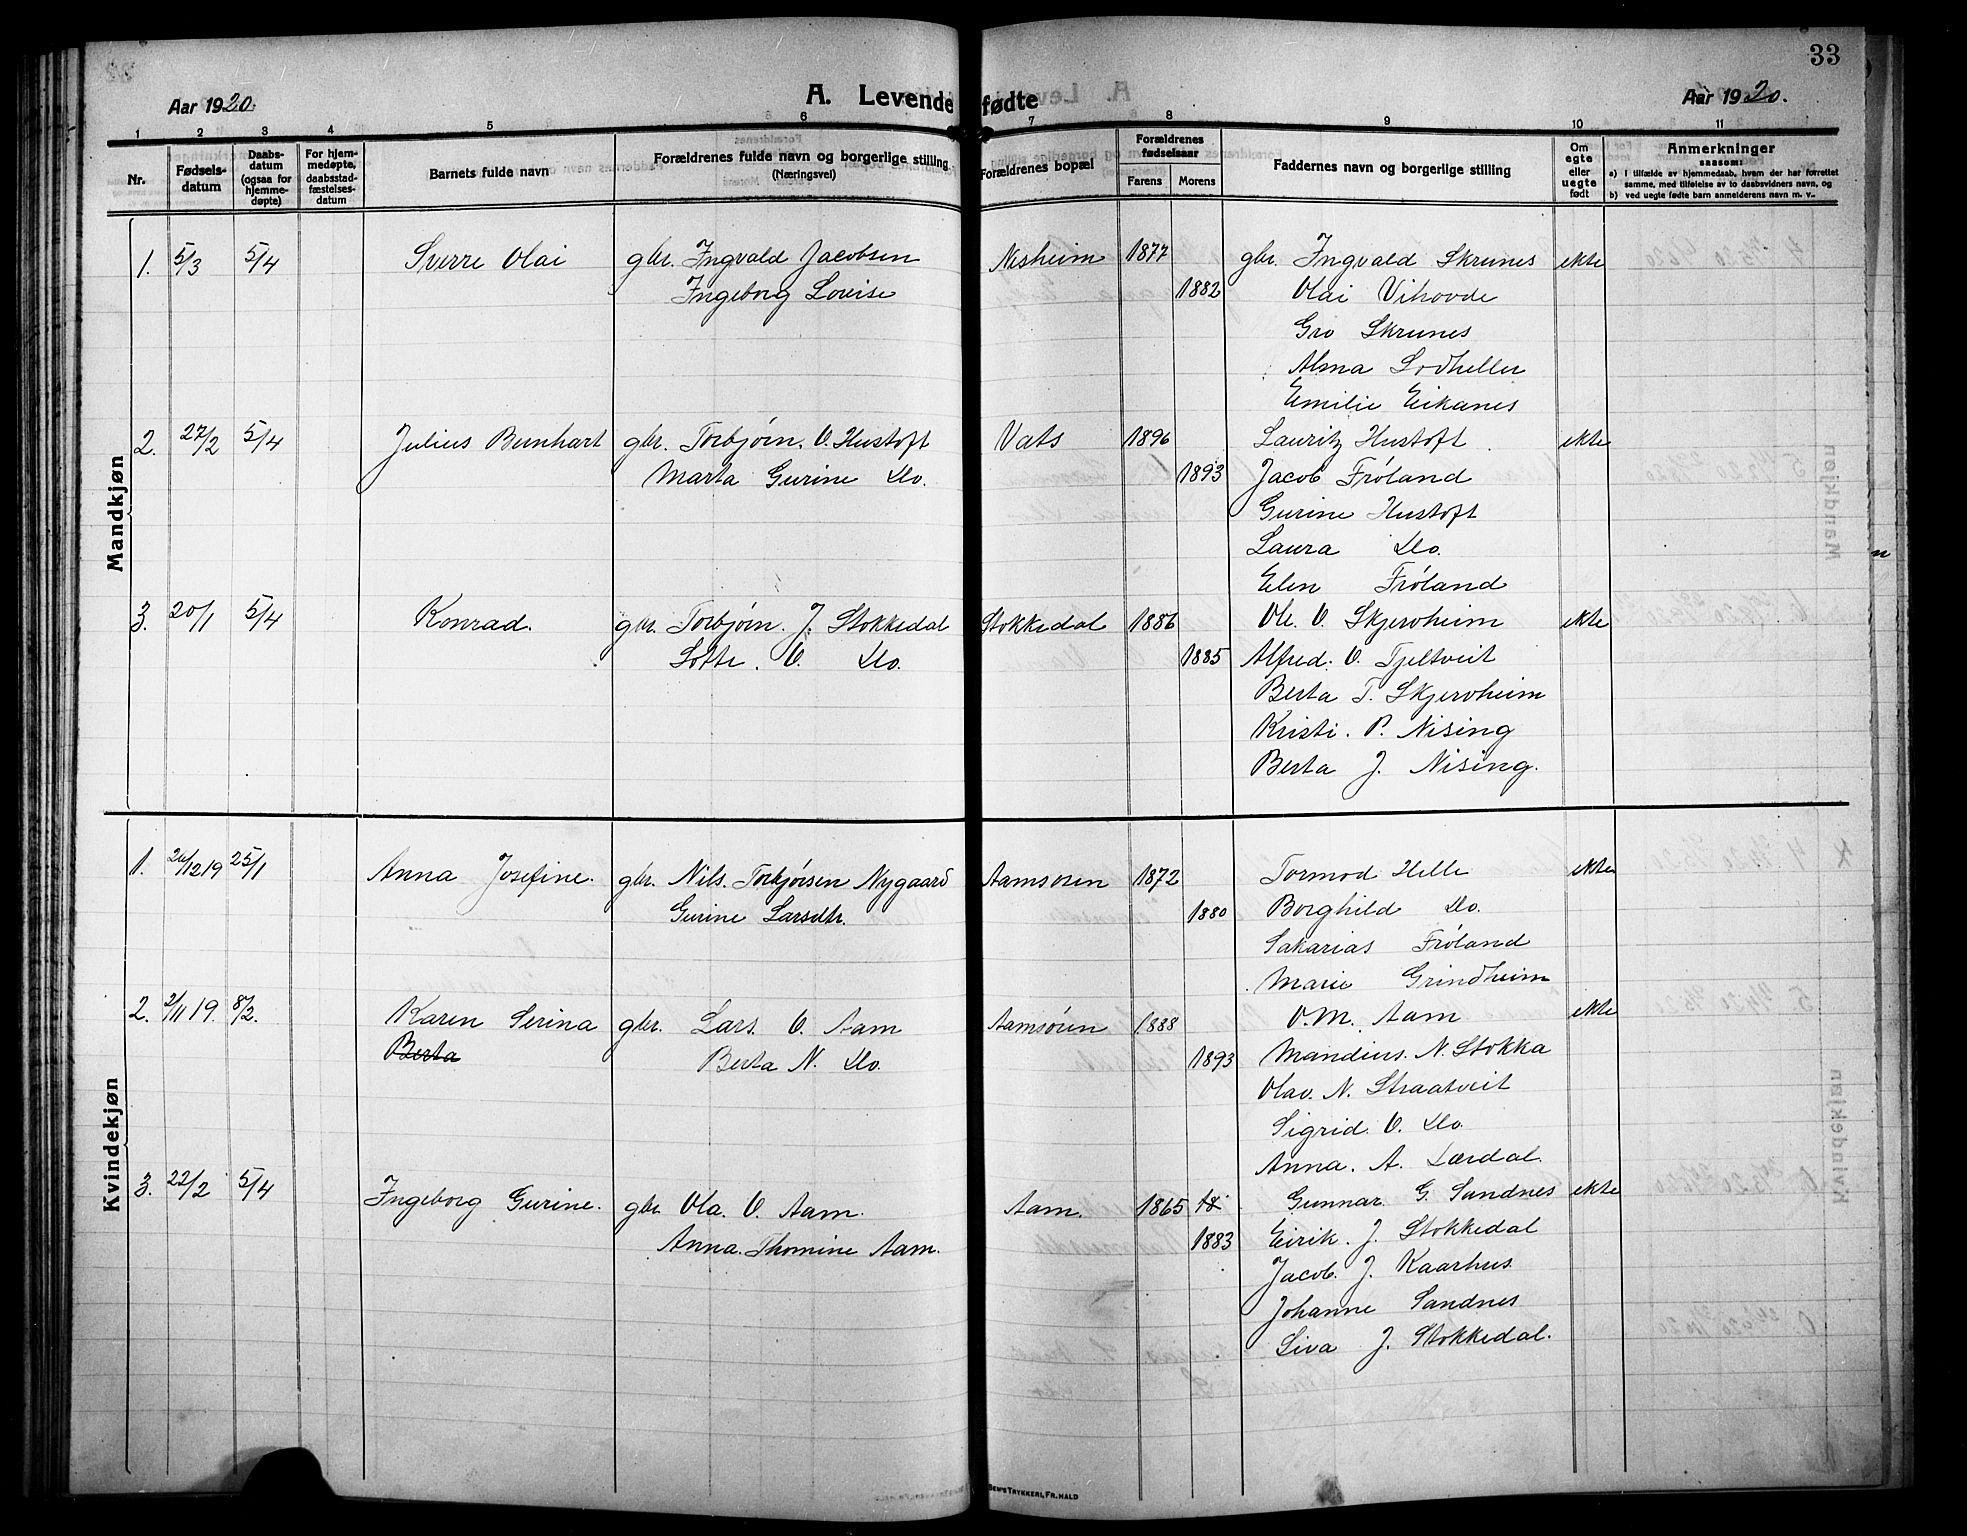 33
Aar 1920.
A. Levende fødte
Aar 1920.
1 2 3 4 5 6 7 8 9 10 11
Nr.
Fødsels-
datum
Daabs-
datum
(ogsaa for
hjemme-
døpte)
For hjem-
medøpte,
daabsstad-
fæstelses-
datum
Barnets fulde navn
Forældrenes fulde navn og borgerlige stilling
(Næringsvei)
Forældrenes bopæl
Forældrenes
fødselsaar
Farens Morens
Faddernes navn og borgerlige stilling
Om
egte
eller
uegte
født
Anmerkninger
saasom:
a) I tilfælde av hjemmedaab, hvem der har forrettet
samme, med tilføielse av to daabsvidners navn, og
b) ved uegte fødte barn anmelderens navn m. v.
Mandkjøn
1. 5/3 5/4 Sverre Olai gbr. Ingvald Jacobsen Nesheim 1877 gbr. Ingvald Skrunes ekte
Ingeborg Lovise 1882 Olai Vihovde
Gro Skrunes
Alma Lodheller
Emilie Eikanes
2. 27/2 5/4 Julius Bernhart gbr. Torbjørn. O. Hustoft Vats 1896 Lauritz Hustoft ekte
Marta Gurine Do. 1893 Jacob Frøland
Gurine Hustoft
Laura Do.
Elen Frøland
3. 20/1 5/4 Konrad. gbr. Torbjørn. J. Stokkedal Stokkedal 1886 Ole. O. Skjerveheim ekte
Lotte. O. Do. 1885 Alfred. O. Tjeltveit
Berta T. Skjerveheim
Kristi. P. Nising
Berta J. Nising.
Kvindekjøn
1. 26/12 19 25/1 Anna Josefine. gbr. Nils. Torbjørsen Nygaard Aamsøren 1872 Tormod Helle ekte
Gurine Larsdtr. 1880 Borghild Do.
Sakarias Frøland
Marie Grindheim
2. 2/11 19. 8/2. Karen Serina gbr. Lars. O. Aam Aamsøren 1888 O. M. Aam ekte
Berta Berta N. Do. 1893 Mandius. N. Stokka
Olav. N. Straatveit
Sigrid. O. Do.
Anna. A. Lærdal.
3. 22/2 5/4 Ingeborg Gurine. gbr Ola. O. Aam. Aam. 1865 18 Gunnar G. Sandnes ekte
Anna. Thomine Aam. 1883 Eirik. J. Stokkedal
Jacob. J. Kaarhus
Johanne Sandnes
Siva J. Stokkedal.